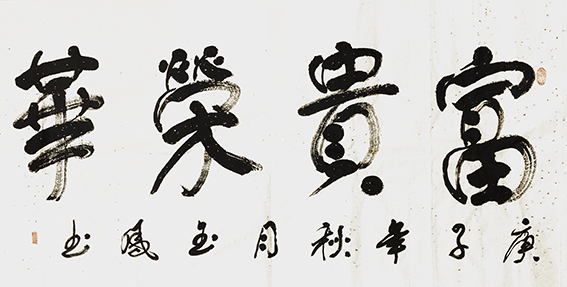 富貴榮華
庚子年秋月玉鳳书